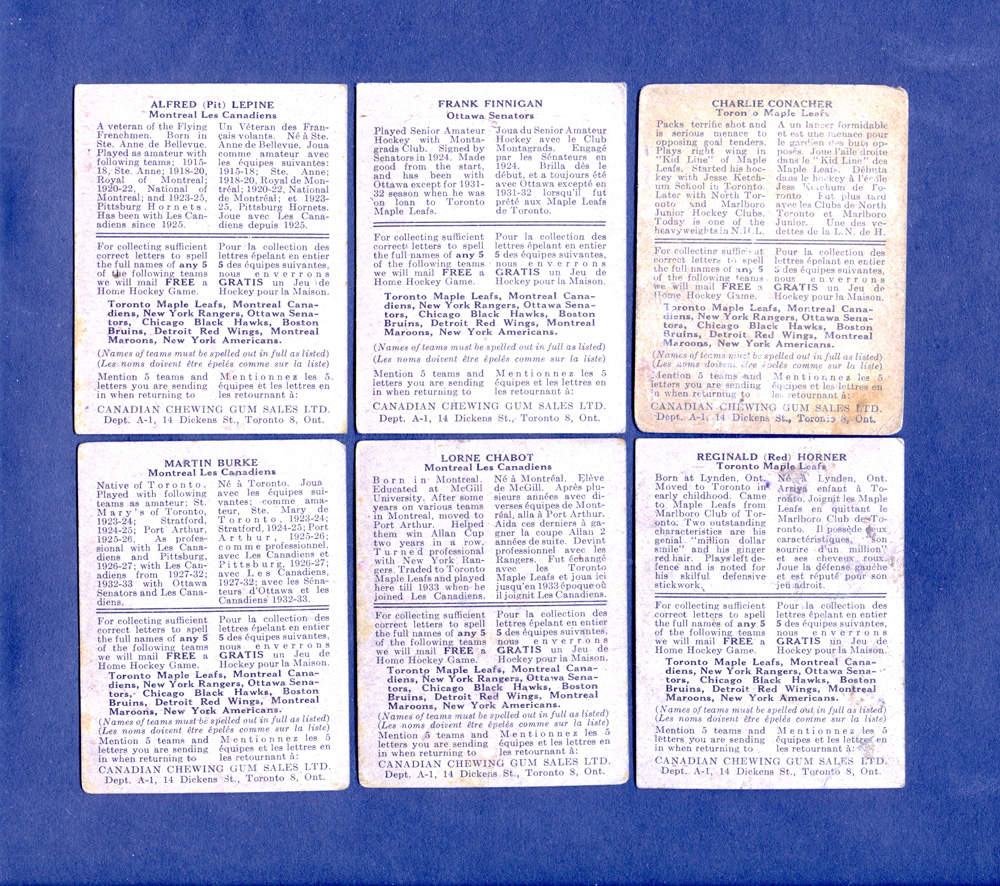 ALFRED (Pit) LEPINE
Montreal Les Canadiens
A veteran of the Flying
Frenchmen. Born in
Ste. Anne de Bellevue.
Played as amateur with
following teams; 1915-
18, Ste. Anne; 1918-20,
Royal of Montreal;
1920-22, National of
Montreal; and 1923-25,
Pittsburg Hornets.
Has been with Les Can-
adiens since 1925.
Un Vétéran des Fran-
çais volants. Né à Ste.
Anne de Bellevue. Joua
comme amateur avec
les équipes suivantes:
1915-18; Ste. Anne;
1918-20, Royal de Mon-
tréal; 1920-22, National
de Montréal; et 1923-
25, Pittsburg Hornets.
Joue avec Les Cana-
diens depuis 1925.
For collecting sufficient
correct letters to spell
the full names of any 5
of the following teams
we will mail FREE a
Home Hockey Game.
Pour la collection des
lettres épelant en entier
5 des équipes suivantes,
nous enverrons
GRATIS un Jeu de
Hockey pour la Maison.
Toronto Maple Leafs, Montreal Cana-
diens, New York Rangers, Ottawa Sena-
tors, Chicago Black Hawks, Boston
Bruins, Detroit Red Wings, Montreal
Maroons, New York Americans.
(Names of teams must be spelled out in full as listed)
(Les noms doivent être épelés comme sur la liste)
Mention 5 teams and
letters you are sending
in when returning to
Mentionnez les 5
équipes et les lettres en
les retournant à:
CANADIAN CHEWING GUM SALES LTD.
Dept. A-1, 14 Dickens St., Toronto 8, Ont.
FRANK FINNIGAN
Ottawa Senators
Played Senior Amateur
Hockey with Monta-
grads Club. Signed by
Senators in 1924. Made
good from the start,
and has been with
Ottawa except for 1931-
32 season when he was
on loan to Toronto
Maple Leafs.
Joua du Senior Amateur
Hockey avec le Club
Montagrads. Engagé
par les Sénateurs en
1924. Brilla dès le
début, et a toujours été
avec Ottawa excepté en
1931-32 lorsqu'il fut
prêté aux Maple Leafs
de Toronto.
For collecting sufficient
correct letters to spell
the full names of any 5
of the following teams
we will mail FREE a
Home Hockey Game.
Pour la collection des
lettres épelant en entier
5 des équipes suivantes,
nous enverrons
GRATIS un Jeu de
Hockey pour la Maison.
Toronto Maple Leafs, Montreal Cana-
diens, New York Rangers, Ottawa Sena-
tors, Chicago Black Hawks, Boston
Bruins, Detroit Red Wings, Montreal
Maroons, New York Americans.
(Names of teams must be spelled out in full as listed)
(Les noms doivent être épelés comme sur la liste)
Mention 5 teams and
letters you are sending
in when returning to
Mentionnez les 5
équipes et les lettres en
les retournant à:
CANADIAN CHEWING GUM SALES LTD.
Dept. A-1, 14 Dickens St., Toronto 8, Ont.
CHARLIE CONACHER
Toronto Maple Leafs
Packs terrific shot and
is serious menace to
opposing goal tenders.
Plays right wing in
"Kid Line" of Maple
Leafs. Started his hoc-
key with Jesse Ketch-
um School in Toronto.
Later with North Tor-
onto and Marlboro
Junior Hockey Clubs.
Today is one of the
heavyweights in N.H.L.
A un lancer formidable
et est une menace pour
le gardien des buts op-
posés. Joue l'aile droite
dans le "Kid Line" des
Maple Leafs. Débuta
dans le hockey à l'école
Jess Ketchum de To-
ronto Fut plus tard
avec les Clubs de North
Toronto et Marlboro
Junior. Une des ve-
dettes de la L.N. de H.
For collecting sufficient
correct letters to spell
the full names of any 5
of the following teams
we will mail FREE a
Home Hockey Game.
Pour la collection des
lettres épelant en entier
5 des équipes suivantes,
nous enverrons
GRATIS un Jeu de
Hockey pour la Maison.
Toronto Maple Leafs, Montreal Cana-
diens, New York Rangers, Ottawa Sena-
tors, Chicago Black Hawks, Boston
Bruins, Detroit Red Wings, Montreal
Maroons, New York Americans.
(Names of teams must be spelled out in full as listed)
(Les noms doivent être épelés comme sur la liste)
Mention 5 teams and
letters you are sending
in when returning to
Mentionnez les 5
équipes et les lettres en
les retournant à:
CANADIAN CHEWING GUM SALES LTD.
Dept. A-1, 14 Dickens St., Toronto 8, Ont.
MARTIN BURKE
Montreal Les Canadiens
Native of Toronto.
Played with following
teams as amateur; St.
Mary's of Toronto,
1923-24; Stratford,
1924-25; Port Arthur,
1925-26. As profes-
sional with Les Cana-
diens and Pittsburg,
1926-27; with Les Can-
adiens from 1927-32;
1932-33 with Ottawa
Senators and Les Cana-
diens.
Né à Toronto. Joua
avec les équipes sui-
vantes; comme ama-
teur, Ste. Mary de
Toronto, 1923-24;
Stratford, 1924-25; Port
Arthur, 1925-26;
comme professionnel,
avec Les Canadiens et
Pittsburg, 1926-27;
avec Les Canadiens,
1927-32; avec les Séna-
teurs d'Ottawa et les
Canadiens 1932-33.
For collecting sufficient
correct letters to spell
the full names of any 5
of the following teams
we will mail FREE a
Home Hockey Game.
Pour la collection des
lettres épelant en entier
5 des équipes suivantes,
nous enverrons
GRATIS un Jeu de
Hockey pour la Maison.
Toronto Maple Leafs, Montreal Cana-
diens, New York Rangers, Ottawa Sena-
tors, Chicago Black Hawks, Boston
Bruins, Detroit Red Wings, Montreal
Maroons, New York Americans.
(Names of teams must be spelled out in full as listed)
(Les noms doivent être épelés comme sur la liste)
Mention 5 teams and
letters you are sending
in when returning to
Mentionnez les 5
équipes et les lettres en
les retournant à:
CANADIAN CHEWING GUM SALES LTD.
Dept. A-1, 14 Dickens St., Toronto 8, Ont.
LORNE CHABOT
Montreal Les Canadiens
Born in Montreal.
Educated at McGill
University. After some
years on various teams
in Montreal, moved to
Port Arthur. Helped
them win Allan Cup
two years in a row.
Turned professional
with New York Ran-
gers. Traded to Toronto
Maple Leafs and played
here till 1933 when he
joined Les Canadiens.
Né à Montréal. Elève
de McGill. Après plu-
sieurs années avec di-
verses équipes de Mont-
réal, alla à Port Arthur.
Aida ces derniers à ga-
gner la coupe Allan 2
années de suite. Devint
professionnel avec les
Rangers. Fut échangé
avec les Toronto
Maple Leafs et joua ici
jusqu'en 1933 époque où
il joignit Les Canadiens.
For collecting sufficient
correct letters to spell
the full names of any 5
of the following teams
we will mail FREE a
Home Hockey Game.
Pour la collection des
lettres épelant en entier
5 des équipes suivantes,
nous enverrons
GRATIS un Jeu de
Hockey pour la Maison.
Toronto Maple Leafs, Montreal Cana-
diens, New York Rangers, Ottawa Sena-
tors, Chicago Black Hawks, Boston
Bruins, Detroit Red Wings, Montreal
Maroons, New York Americans.
(Names of teams must be spelled out in full as listed)
(Les noms doivent être épelés comme sur la liste)
Mention 5 teams and
letters you are sending
in when returning to
Mentionnez les 5
équipes et les lettres en
les retournant à:
CANADIAN CHEWING GUM SALES LTD.
Dept. A-1, 14 Dickens St., Toronto 8, Ont.
REGINALD (Red) HORNER
Toronto Maple Leafs
Born at Lynden, Ont.
Moved to Toronto in
early childhood. Came
to Maple Leafs from
Marlboro Club of Tor-
onto. Two outstanding
characteristics are his
genial "million dollar
smile" and his ginger
red hair. Plays left de-
fence and is noted for
his skilful defensive
stickwork.
Né à Lynden, Ont.
Arriva enfant à To-
ronto. Joignit les Maple
Leafs en quittant le
Marlboro Club de To-
ronto. Il possède 2
caractéristiques, son
sourire d'un million"
et ses cheveux roux.
Joue la défense gauche
et est réputé pour son
jeu adroit.
For collecting sufficient
correct letters to spell
the full names of any 5
of the following teams
we will mail FREE a
Home Hockey Game.
Pour la collection des
lettres épelant en entier
5 des équipes suivantes,
nous enverrons
GRATIS un Jeu de
Hockey pour la Maison.
Toronto Maple Leafs, Montreal Cana-
diens, New York Rangers, Ottawa Sena-
tors, Chicago Black Hawks, Boston
Bruins, Detroit Red Wings, Montreal
Maroons, New York Americans.
(Names of teams must be spelled out in full as listed)
(Les noms doivent être épelés comme sur la liste)
Mention 5 teams and
letters you are sending
in when returning to
Mentionnez les 5
équipes et les lettres en
les retournant à:
CANADIAN CHEWING GUM SALES LTD.
Dept. A-1, 14 Dickens St., Toronto 8, Ont.